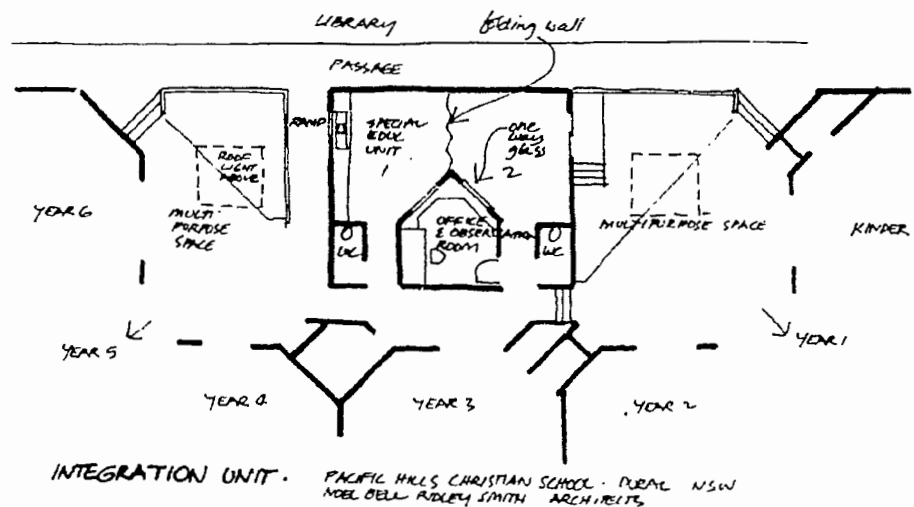 LIBRARY
folding wall
PASSAGE
RAMP
SPECIAL
EDUC
UNIT
1
one
way
glass
2
ROOF
LIGHT
ABOVE
YEAR 6
MULTI
PURPOSE
SPACE
OFFICE
& OBSERVATION
ROOM
WC
WC
MULTIPURPOSE SPACE
KINDER
YEAR 5
YEAR 1
YEAR 4
YEAR 3
YEAR 2
INTEGRATION UNIT. PACIFIC HILLS CHRISTIAN SCHOOL. DURAL NSW
NOEL BELL RIDLEY SMITH ARCHITECTS